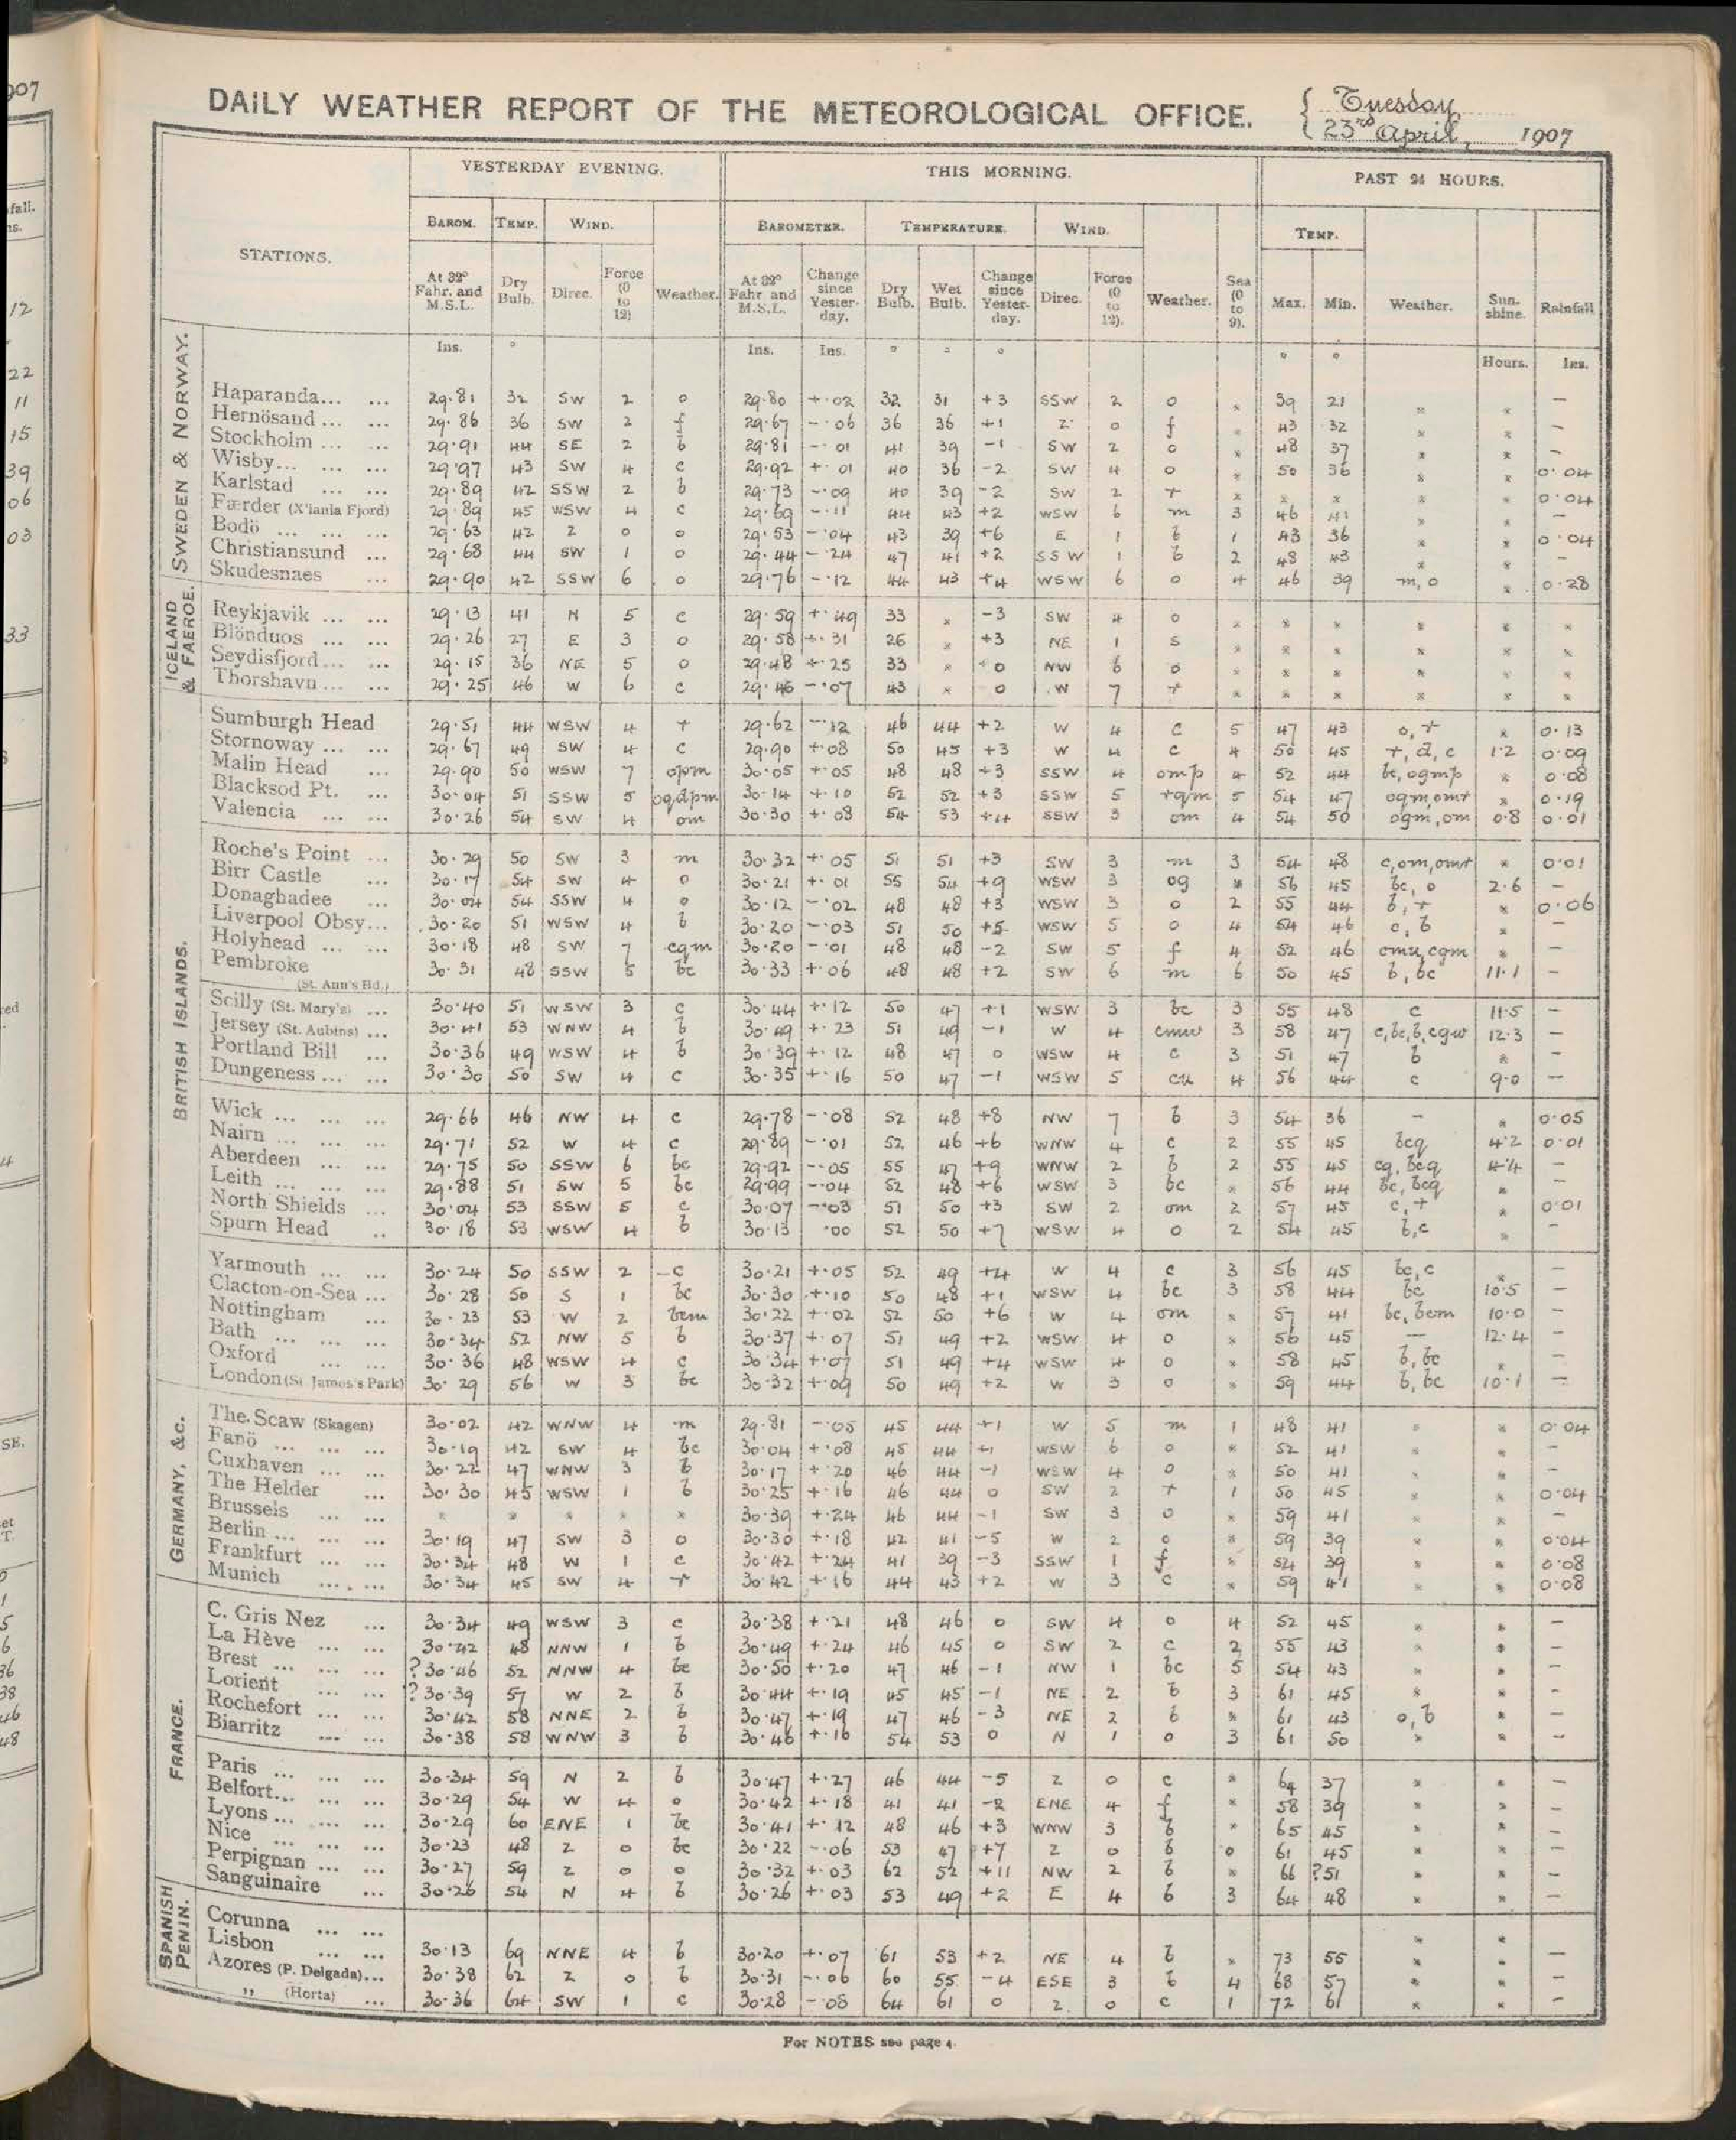 DAILY WEATHER REPORT OF THE METEOROLOGICAL OFFICE. { Tuesday 23rd April, 1907
YESTERDAY EVENING. THIS MORNING. PAST 24 HOURS.
STATIONS. BAROM. TEMP. WIND. Weather. BAROMETER. TEMPERATURE. WIND. Weather. Sea (0 to 9). TEMP. Weather. Sunshine. Rainfall
At 32° Fahr. and M.S.L. Dry Bulb. Direc. Force (0 to 12) At 32° Fahr. and M.S.L. Change since Yesterday. Dry Bulb. Wet Bulb. Change since Yesterday. Direc. Force (0 to 12). Max. Min.
Ins. ° Ins. Ins. ° ° ° ° ° Hours. Ins.
SWEDEN & NORWAY.
Haparanda... ... 29.81 32 SW 2 o 29.80 +.02 32 31 +3 SSW 2 o * 39 21 * * —
Hernösand ... ... 29.86 36 SW 2 f 29.67 -.06 36 36 +1 Z 0 f * 43 32 * * —
Stockholm ... ... 29.91 44 SE 2 b 29.81 -.01 41 39 -1 SW 2 o * 48 37 * * —
Wisby... ... ... 29.97 43 SW 4 c 29.92 +.01 40 36 -2 SW 4 o * 50 36 * * 0.04
Karlstad ... ... 29.89 42 SSW 2 b 29.73 -.09 40 39 -2 SW 2 r * * * * * 0.04
Færder (X'iania Fjord) 29.89 45 WSW 4 c 29.69 -.11 44 43 +2 WSW 6 m 3 46 41 * * —
Bodö ... ... ... 29.63 42 Z 0 o 29.53 -.04 43 39 +6 E 1 b 1 43 36 * * 0.04
Christiansund ... 29.68 44 SW 1 o 29.44 -.24 47 41 +2 SSW 1 b 2 48 43 * *
Skudesnaes ... 29.90 42 SSW 6 o 29.76 -.12 44 43 +4 WSW 6 o 4 46 39 m, o * 0.28
ICELAND & FAEROE.
Reykjavik ... ... 29.13 41 N 5 c 29.59 +.49 33 * -3 SW 4 o * * * * * *
Blönduos ... ... 29.26 27 E 3 o 29.58 +.31 26 * +3 NE 1 s * * * * * *
Seydisfjord... ... 29.15 36 NE 5 o 29.48 +.25 33 * 0 NW 6 o * * * * * *
Thorshavn ... ... 29.25 46 W 6 c 29.46 -.07 43 * 0 W 7 r * * * * * *
BRITISH ISLANDS.
Sumburgh Head 29.51 44 WSW 4 r 29.62 -.12 46 44 +2 W 4 c 5 47 43 o, r * 0.13
Stornoway ... ... 29.67 49 SW 4 c 29.90 +.08 50 45 +3 W 4 c 4 50 45 r, d, c 1.2 0.09
Malin Head ... 29.90 50 WSW 7 opm 30.05 +.05 48 48 +3 SSW 4 omp 4 52 44 bc, ogmp * 0.08
Blacksod Pt. ... 30.04 51 SSW 5 ogdpm 30.14 +.10 52 52 +3 SSW 5 rqm 5 54 47 oqm, omr * 0.19
Valencia ... ... 30.26 54 SW 4 om 30.30 +.08 54 53 +4 SSW 3 om 4 54 50 ogm, om 0.8 0.01
Roche's Point ... 30.29 50 SW 3 m 30.32 +.05 51 51 +3 SW 3 m 3 54 48 c, om, omr * 0.01
Birr Castle ... 30.17 54 SW 4 o 30.21 +.01 55 54 +9 WSW 3 og * 56 45 bc, o 2.6 —
Donaghadee ... 30.04 54 SSW 4 o 30.12 -.02 48 48 +3 WSW 3 o 2 55 44 b, r * 0.06
Liverpool Obsy... 30.20 51 WSW 4 b 30.20 -.03 51 50 +5 WSW 5 o 4 54 46 c, b *
Holyhead ... ... 30.18 48 SW 7 cqm 30.20 -.01 48 48 -2 SW 5 f 4 52 46 cmu, cqm * —
Pembroke (St. Ann's Hd.) 30.31 48 SSW 5 bc 30.33 +.06 48 48 +2 SW 6 m 6 50 45 b, bc 11.1 —
Scilly (St. Mary's) ... 30.40 51 WSW 3 c 30.44 +.12 50 47 +1 WSW 3 bc 3 55 48 c 11.5 —
Jersey (St. Aubins) ... 30.41 53 WNW 4 b 30.49 +.23 51 49 -1 W 4 cmw 3 58 47 c, bc, b, cgw 12.3 —
Portland Bill ... 30.36 49 WSW 4 b 30.39 +.12 48 47 0 WSW 4 c 3 51 47 b * —
Dungeness ... ... 30.30 50 SW 4 c 30.35 +.16 50 47 -1 WSW 5 cu 4 56 44 c 9.0 —
Wick ... ... ... 29.66 46 NW 4 c 29.78 -.08 52 48 +8 NW 7 b 3 54 36 — * 0.05
Nairn ... ... ... 29.71 52 W 4 c 29.89 -.01 52 46 +6 WNW 4 c 2 55 45 bcq 4.2 0.01
Aberdeen ... ... 29.75 50 SSW 6 bc 29.92 -.05 55 47 +9 WNW 2 b 2 55 45 cq, bcq 4.4 —
Leith ... ... ... 29.88 51 SW 5 bc 29.99 -.04 52 48 +6 WSW 3 bc * 56 44 bc, bcq * —
North Shields ... 30.04 53 SSW 5 c 30.07 -.03 51 50 +3 SW 2 om 2 57 45 c, r * 0.01
Spurn Head .. 30.18 53 WSW 4 b 30.13 .00 52 50 +7 WSW 4 o 2 54 45 b, c * —
Yarmouth ... ... 30.24 50 SSW 2 c 30.21 +.05 52 49 +4 W 4 c 3 56 45 bc, c * —
Clacton-on-Sea ... 30.28 50 S 1 bc 30.30 +.10 50 48 +1 WSW 4 bc 3 58 44 bc 10.5 —
Nottingham ... 30.23 53 W 2 bcm 30.22 +.02 52 50 +6 W 4 om * 57 41 bc, bcm 10.0 —
Bath ... ... ... 30.34 52 NW 5 b 30.37 +.07 51 49 +2 WSW 4 o * 56 45 — 12.4 —
Oxford ... ... 30.36 48 WSW 4 c 30.34 +.07 51 49 +4 WSW 4 o * 58 45 b, bc * —
London (St James's Park) 30.29 56 W 3 bc 30.32 +.09 50 49 +2 W 3 o * 59 44 b, bc 10.1 —
GERMANY, &c.
The Scaw (Skagen) 30.02 42 WNW 4 m 29.81 -.05 45 44 +1 W 5 m 1 48 41 * * 0.04
Fanö ... ... ... 30.19 42 SW 4 bc 30.04 +.08 45 44 +1 WSW 6 o * 52 41 * * —
Cuxhaven ... ... 30.22 47 WNW 3 b 30.17 +.20 46 44 -1 WSW 4 o * 50 41 * * —
The Helder ... 30.30 45 WSW 1 b 30.25 +.16 46 44 0 SW 2 r 1 50 45 * * 0.04
Brussels ... ... * * * * * 30.39 +.24 46 44 -1 SW 3 o * 59 41 * * —
Berlin ... ... ... 30.19 47 SW 3 o 30.30 +.18 42 41 -5 W 2 o * 59 39 * * 0.04
Frankfurt ... ... 30.34 48 W 1 c 30.42 +.24 41 39 -3 SSW 1 f * 54 39 * * 0.08
Munich ... ... 30.34 45 SW 4 r 30.42 +.16 44 43 +2 W 3 c * 59 41 * * 0.08
FRANCE.
C. Gris Nez ... 30.34 49 WSW 3 c 30.38 +.21 48 46 0 SW 4 o 4 52 45 * * —
La Hève ... ... 30.42 48 NNW 1 b 30.49 +.24 46 45 0 SW 2 c 2 55 43 * * —
Brest ... ... ... ?30.46 52 NNW 4 bc 30.50 +.20 47 46 -1 NW 1 bc 5 54 43 * * —
Lorient ... ... ?30.39 57 W 2 b 30.44 +.19 45 45 -1 NE 2 b 3 61 45 * * —
Rochefort ... ... 30.42 58 NNE 2 b 30.47 +.19 47 46 -3 NE 2 b * 61 43 o, b * —
Biarritz ... ... 30.38 58 WNW 3 b 30.46 +.16 54 53 0 N 1 o 3 61 50 * * —
Paris ... ... ... 30.34 59 N 2 b 30.47 +.27 46 44 -5 Z 0 c * 64 37 * * —
Belfort... ... ... 30.29 54 W 4 o 30.42 +.18 41 41 -2 ENE 4 f * 58 39 * * —
Lyons ... ... ... 30.29 60 ENE 1 bc 30.41 +.12 48 46 +3 WNW 3 b * 65 45 * * —
Nice ... ... ... 30.23 48 Z 0 bc 30.22 -.06 53 47 +7 Z 0 b 0 61 45 * * —
Perpignan ... ... 30.27 59 Z 0 o 30.32 +.03 62 52 +11 NW 2 b * 66 ?51 * * —
Sanguinaire ... 30.26 54 N 4 b 30.26 +.03 53 49 +2 E 4 b 3 64 48 * * —
SPANISH PENIN.
Corunna ... ... * *
Lisbon ... ... 30.13 69 NNE 4 b 30.20 +.07 61 53 +2 NE 4 b * 73 55 * * —
Azores (P. Delgada)... 30.38 62 Z 0 b 30.31 -.06 60 55 -4 ESE 3 b 4 68 57 * * —
,, (Horta) ... 30.36 64 SW 1 c 30.28 -.08 64 61 0 Z 0 c 1 72 61 * * —
For NOTES see page 4.